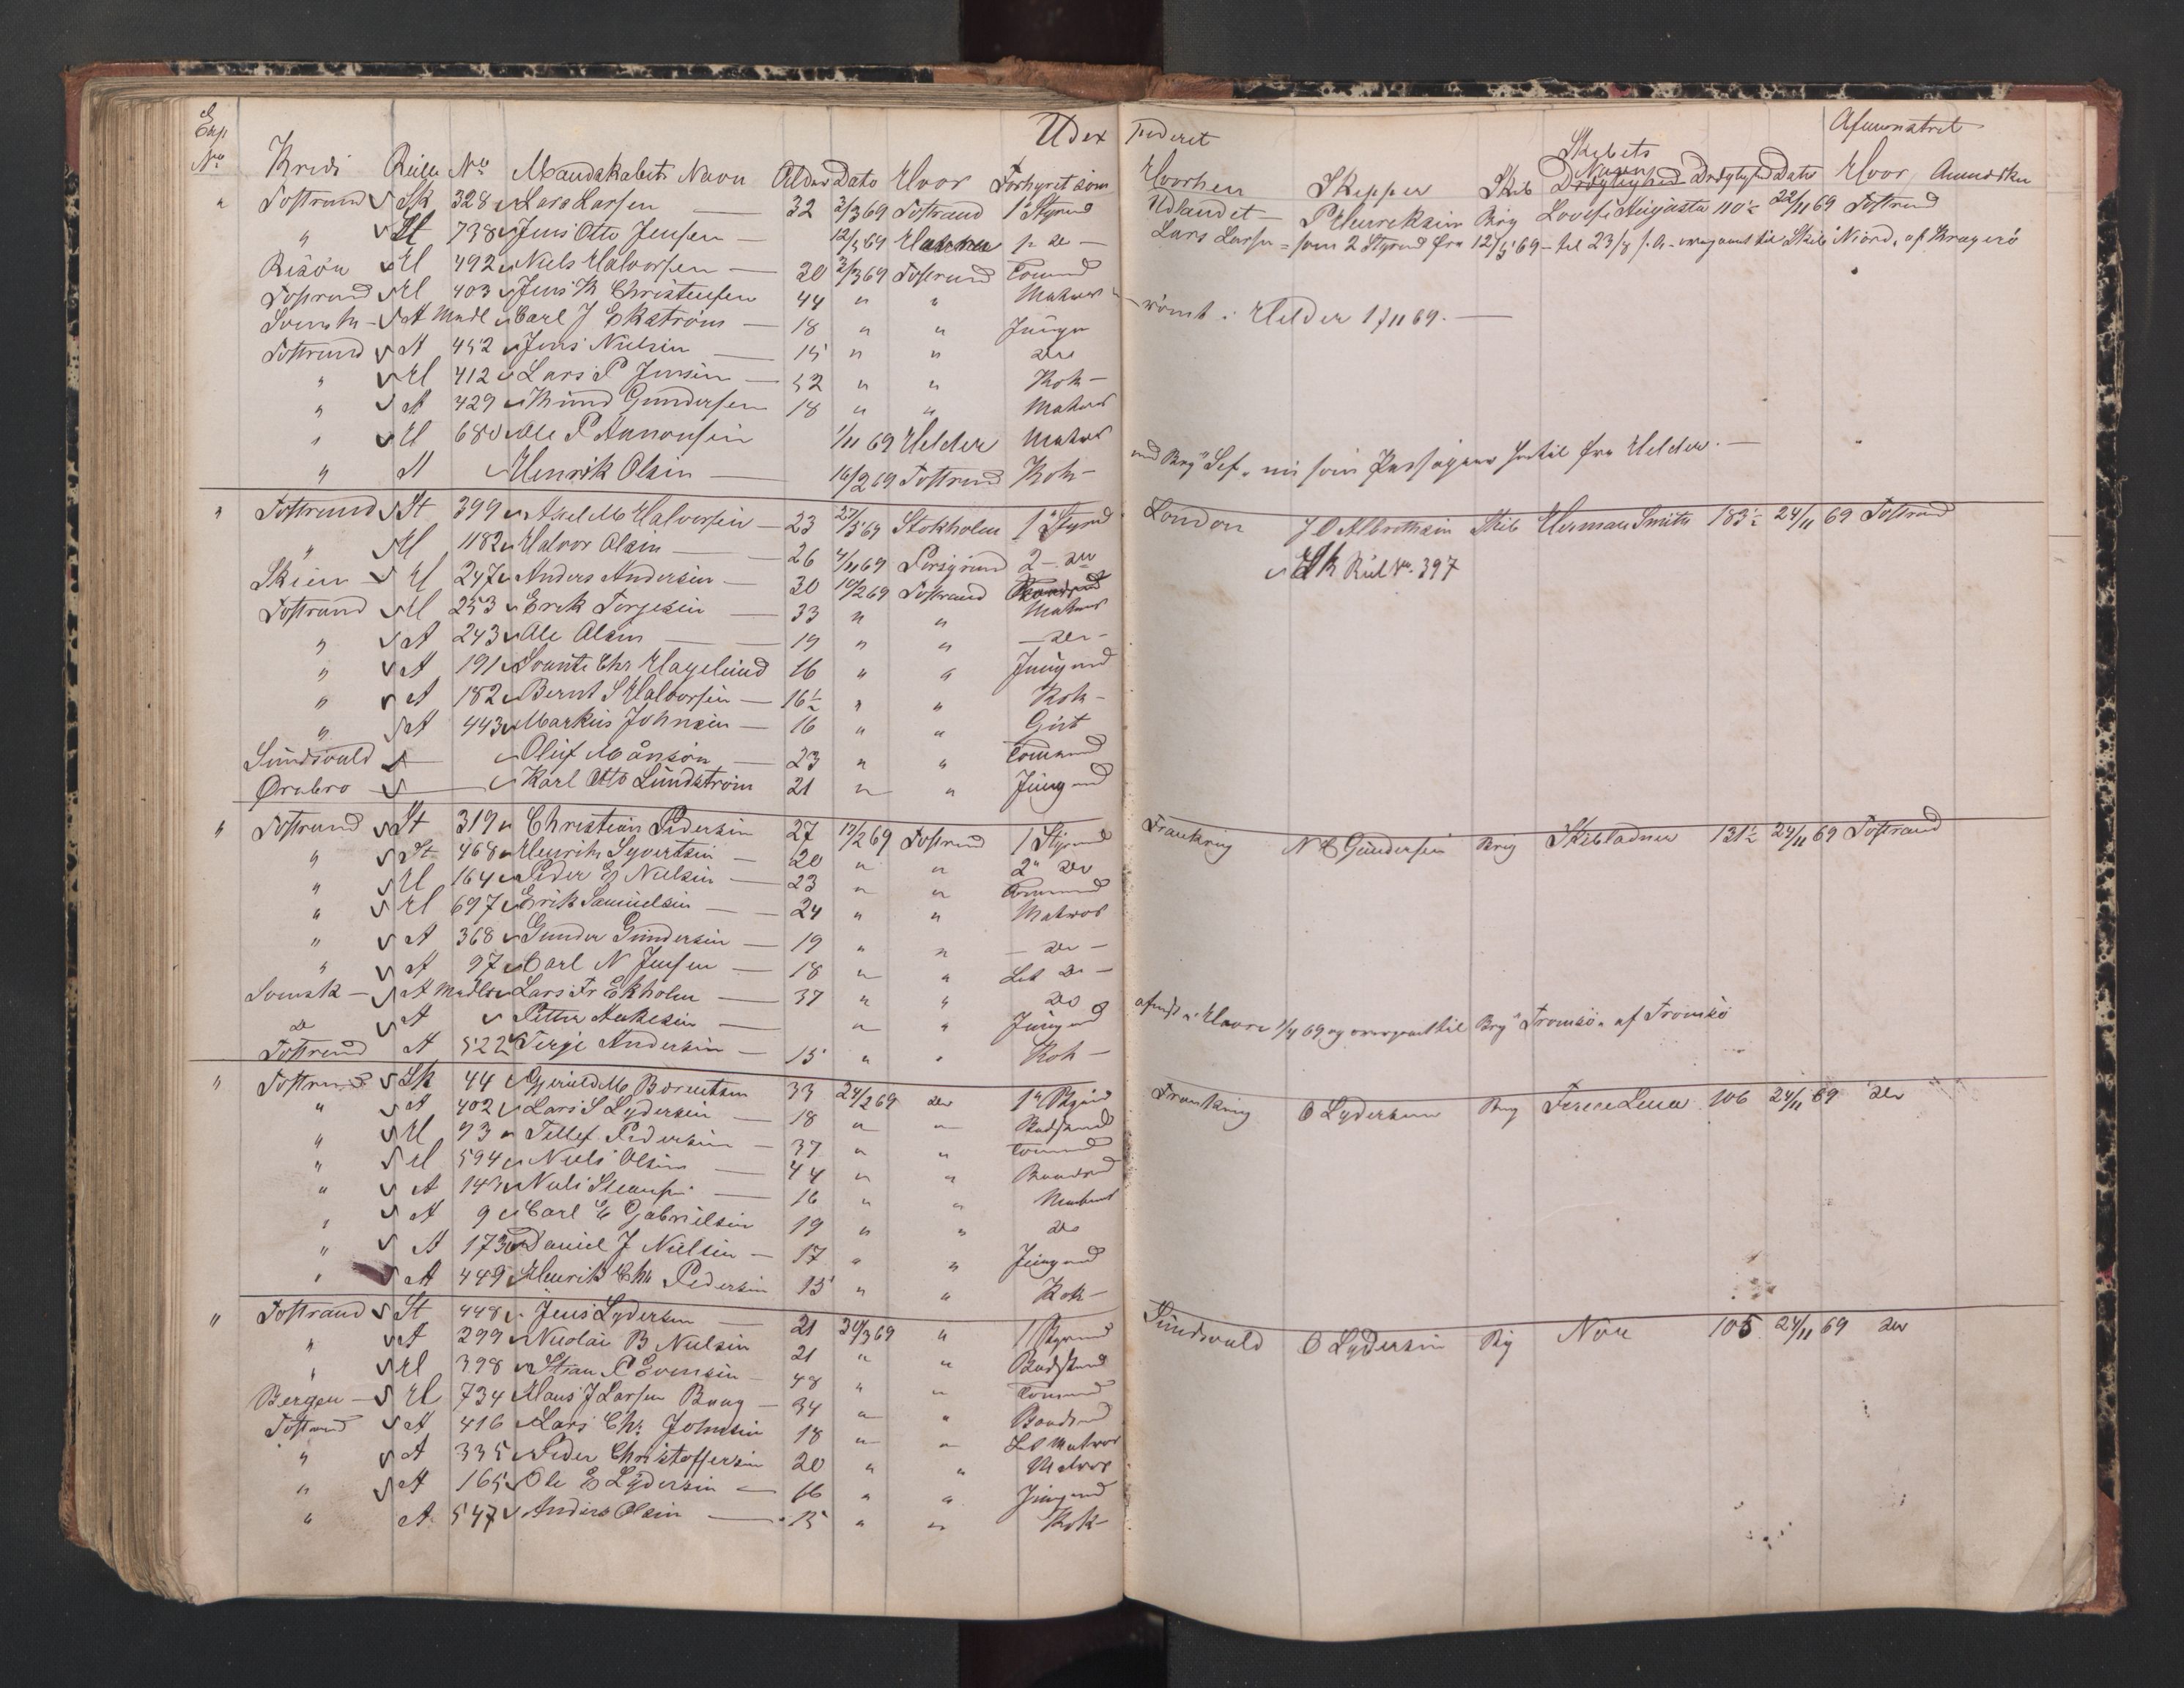 Exp Udex pederet Afmønstret
No Kreds Rulle No Mandskabets Navn Alder Dato Hvor Forhyret som Hvorhen Skipper Skib Skibets Navn Drægtighed Drægtighed Dato Hvor Anmærkn
" Tostrand Sk 328 Lars Larsen 32 3/3 69 Tostrand 1 Styrmd Udlandet P Henriksen Brig Lovise Augusta 110½ 22/11 69 Tostrand
" St 738 Jens Otto Jensen 12/5 69 1ste do Lars Larsen som 2 Styrmd fra 12/5 69 til 23/8 s. A. overgaaet til Skib "Niord" af Kragerö
Risör H 492 Niels Halvorsen 20 3/3 69 Tostrand Tømmd
Tostrand H 403 Jens K Christensen 44 " " Matros
Svensk A Mndl Carl J Ekström 18 " " Jüngm rømt i Helder 1/11 69.
Tostrand A 452 Jens Nielsen 15 " " do
" H 412 Lars P Jensen 52 " " Kok
" A 429 Knud Gundersen 18 " " Matros
" H 680 Ole P Aanonsen 1/11 69 Helder Matros
" A Henrik Olsen 16/2 69 Tostrand Kok med Brig "Lef" som Passager hertil fra Helder.
" Tostrand St 399 Axel M Halvorsen 23 27/5 69 Stokholm 1ste Styrmd London J O Albrethsen Skib Herman Smith 183½ 24/11 69 Tostrand
" H 1182 Halvor Olsen 26 4/11 69 Porsgrund 2 do Sk Rul No. 397
Skien H 247 Anders Andersen 30 10/2 69 Tostrand
Tostrand H 253 Erik Torjesen 33 " " Matros
" A 243 Ole Olsen 19 " " do
" A 191 Svante Chr Hagelund 16 " " Jüngmd
" A 182 Bernt S Halvorsen 16½ " " Kok
" A 443 Markus Johnsen 16 " " Gut
Sundsvald Oluf Månsón 23 " " Tømmd
Ørebro Karl Otto Lundström 21 " " Jüngmd
" Tostrand St 319 Christian Pedersen 27 17/2 69 Tostrand 1 Styrmd Frankrig N C Gundersen Brig Skibladner 131½ 24/11 69 Tostrand
" St 468 Henrik Syvertsen 20 " " 2 do
" H 164 Peder E Nielsen 23 " " Tømmd
" H 697 Erik Samuelsen 24 " " Matros
" A 368 Gunder Gundersen 19 " " do
" A 97 Carl N Jensen 18 " " Let do
Svensk A Mndl Lars Fr Ekholm 37 " " do
do A Petter " " Jüngmd Havre 1/4 69 og overgaaet til Brig "Tromsö" af Tromsö
Tostrand A 522 Terje Andersen 15 " " Kok
" Tostrand Sk 44 Gjeruld M Berentsen 33 24/2 69 do Frankrig O Lydersen Brig 106 24/11 69 do
" A 402 Lars S Lydersen 18 " " Badsmd
" H 93 Tellef Pedersen 37 " " Tømmd
" H 594 Niels Olsen 44 " " Baadsmd
" A 143 Niels 16 " " Matros
" A 9 Carl E Gabrielsen 19 " " do
" A 173 Daniel J Nielsen 17 " " Jüngmd
" A 449 Henrik Chr Pedersen 15 " " Kok
" Tostrand St 448 Jens Lydersen 21 30/3 69 " 1 Styrmd Sundsvald O Lydersen Brig Nore 105 24/11 69 do
" A 299 Nicolai B Nielsen 21 " " Badsmd
" H 398 Stian P Evensen 48 " " Tømmd
Bergen H 734 Hans J Larsen Baug 34 " " Baadsmd
Tostrand A 416 Lars Chr Johnsen 18 " " Let Matros
" A 335 Peder Christoffersen 20 " " Matros
" A 165 Ole E Lydersen 16 " " Jüngmd
" A 547 Anders Olsen 15 " " Kok